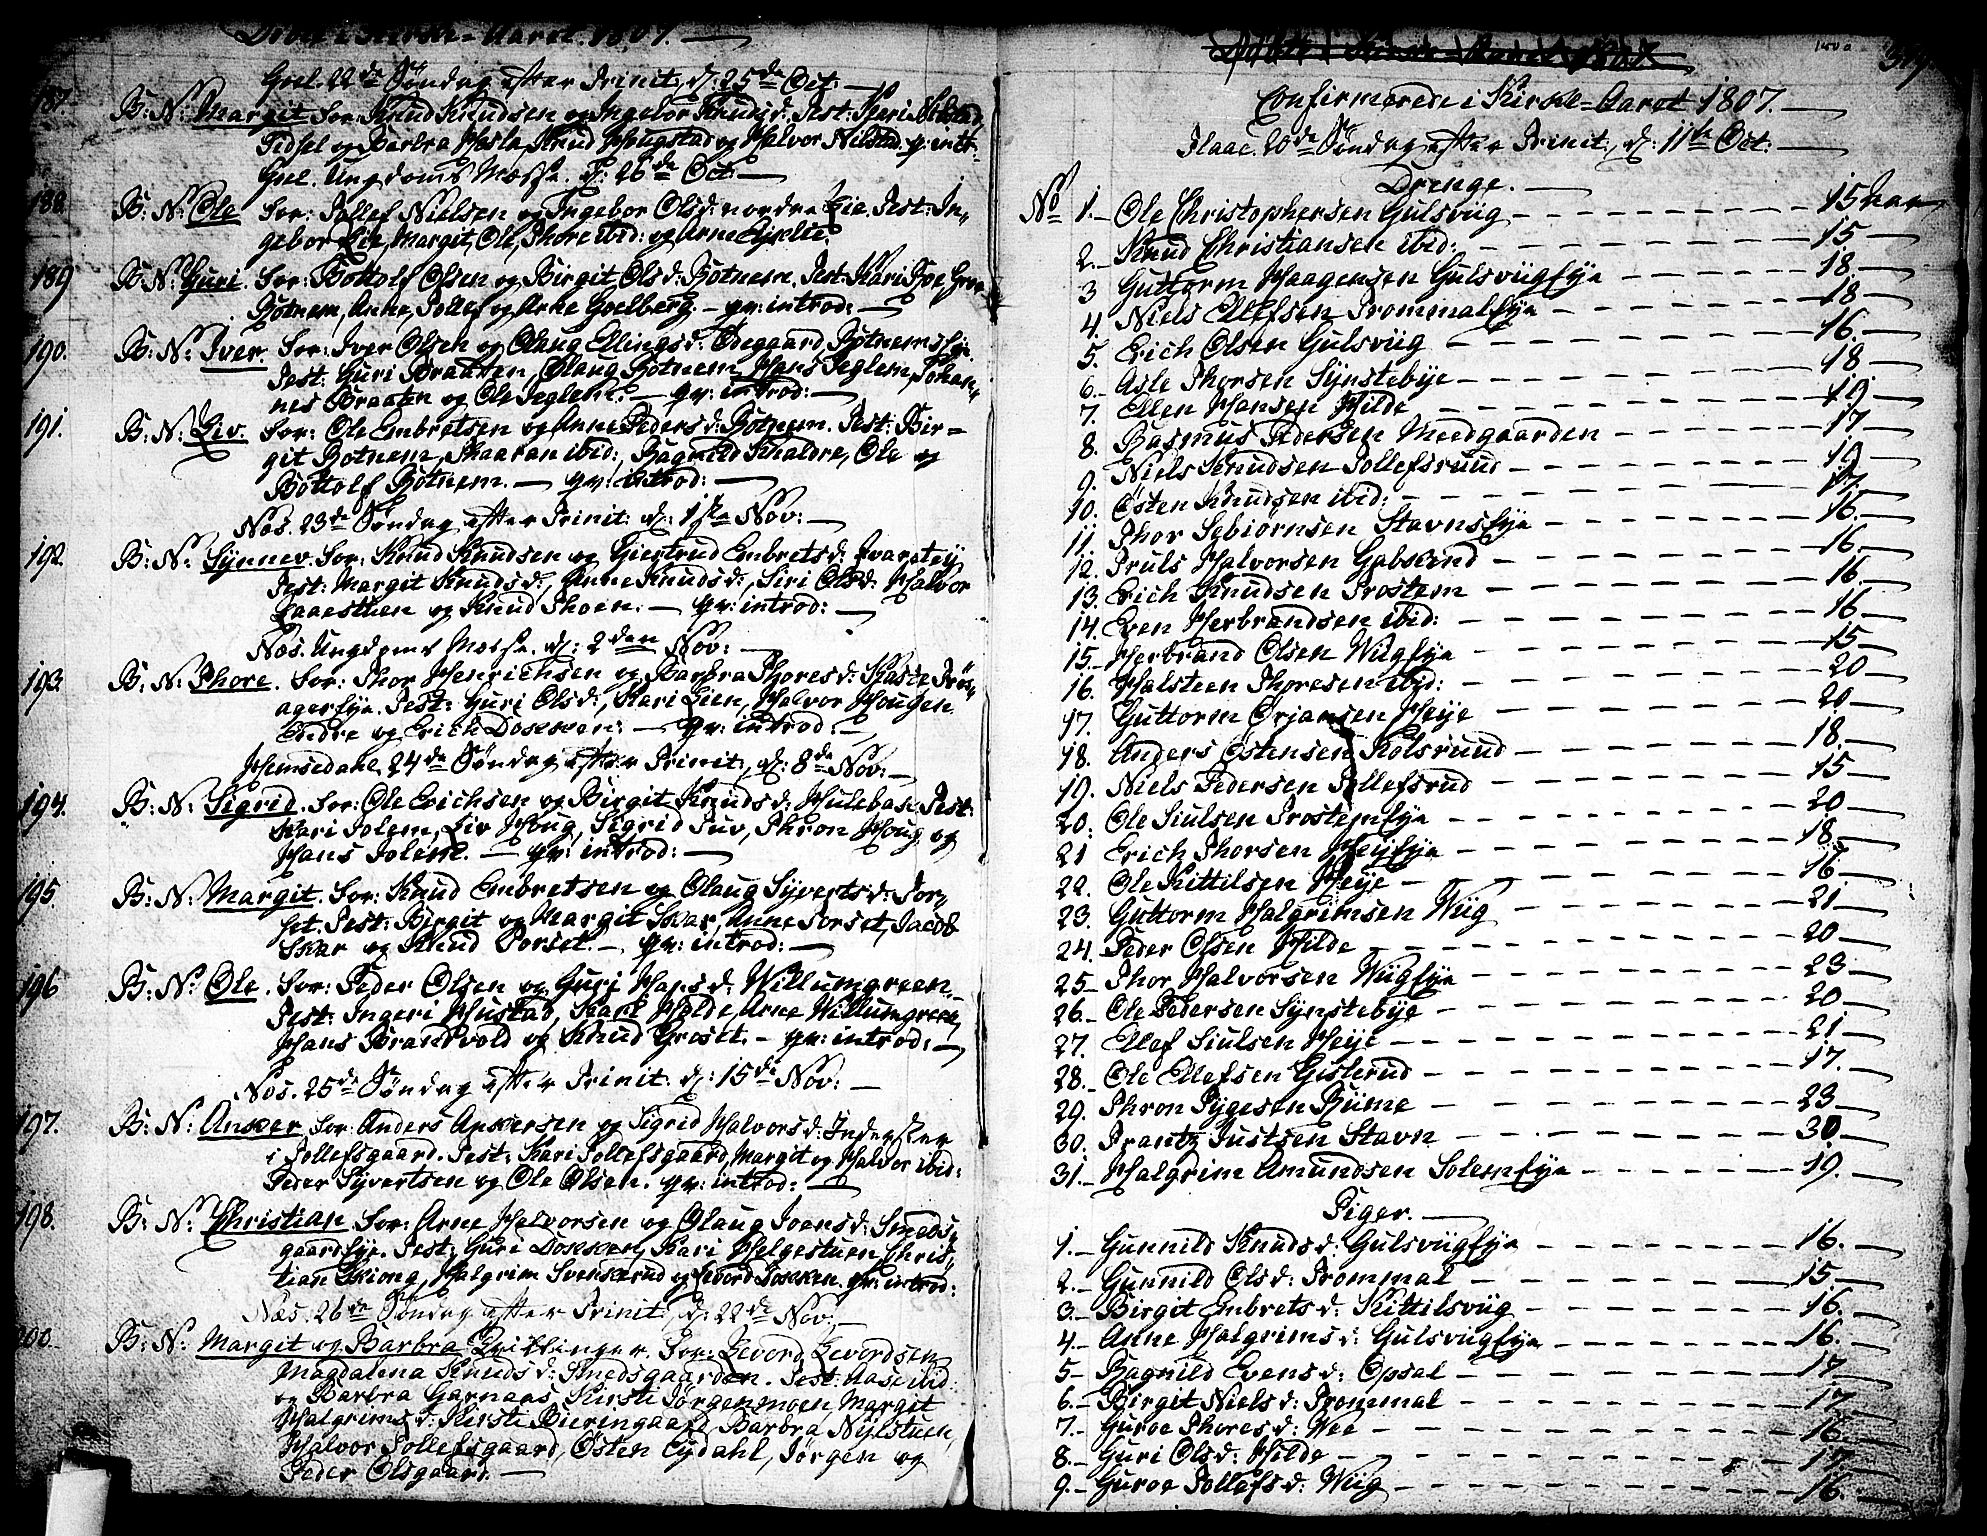 Døbte i Kirke-Aaret 1807.
Goel. 22de Søndag efter Trinit: d: 25de Oct:
187. B: N: Margit For: Knud Knudsen og Ingebor Knudsd: Test: Kari
og Barbra Hesla, Knud Hougstad og Halvor Nilstad. qv: intr:
Goel. Ungdoms Messe. d: 26de Oct:
188. B: N: Ole For: Tollef Nielsen og Ingebor Olsd: nordre Lie. Test: In-
gebor Lie, Margit, Ole, Thore ibid: og Arne
189 B: N: Guri. For: Bottolf Olsen og Birgit Olsd: Botnem. Test: Kari
Botnem, Anne, Tollef og Arne Goelberg. - qv: introd:
190. B: N: Iver. For: Iver Olsen og Olaug Ellingsd: Ødegaard Botnemseje
Test: Guri Braaten, Olaug Botnem, Hans Teglem, Johan-
nes Braaten og Ole Teglem. - qv: introd:
191. B: N: Liv. For: Ole Embretsen og Anne Pedersd: Botnem. Test: Bir-
git Botnem, ibid:, Ragnild Skaldre, Ole og
Bottolf Botnem. - qv: introd:
Næs. 23de Søndag efter Trinit: d: 1ste Nov:
192. B: N: Synnev. For: Knud Knudsen og Giertrud Embretsd:
Test: Margit Knudsd:, Anne Knudsd:, Siri Olsd: Halvor
og Knud Thoen. - qv: introd:
Næs. Ungdoms Messe. d: 2den Nov:
193. B: N: Thore. For: Thor Henrichsen og Barbra Thoresd:
agereje. Test: Guri Olsd:, Kari Lien, Halvor Hougen
Endre og Erich Dokken. - qv: introd:
Hemsedahl, 24de Søndag efter Trinit: d: 8de Nov:
194. B: N: Sigrid. For: Ole Erichsen og Birgit Knudsd: Hulebak Test:
Kari Tolem, Liv Houg, Sigrid Tuv, Thron Houg og
Hans Tolem. - qv: introd:
195. B: N: Margit. For: Knud Embretsen og Olaug Syvertsd: Tor-
set. Test: Birgit og Margit Skar, Anne Torset, Jacob
Skar og Knud Torset. - qv: introd:
196 B: N: Ole. For: Peder Olsen og Guri Hansd: Willumgreen.
Test: Ingeri Hustad, Kari Holde, Arne Willumgreen,
Hans Brandvold og Knud Grøtt. - qv: introd:
Næs. 25de Søndag efter Trinit: d: 15de Nov:
197. B: N: Ansker For: Anders Anskersen og Sigrid Halvorsd: Inderster
i Tollefsgaard. Test: Kari Tollefsgaard, Margit og Halvor ibid:
Peder Syvertsen og Ole Olsen. qv: introd:
198. B: N: Christian For: Arne Halvorsen og Olaug Joensd: Smeds-
gaardeje. Test: Guri Dokken, Kari Helgestuen, Chris-
tian Skiong, Halgrim Svenkerud og Levord Dokken. qv: introd:
Næs. 26de Søndag efter Trinit: d: 22de Nov:
200. B: N: Margit og Barbra Tvillinger. For: Levord Levordsen
Magdalena Knudsd: Smedsgaarden. Test: Aase ibid:
og Barbra Garnaas, Kirsti Jørgenmoen, Margit
Halgrimsd: Kirsti Bierengaard, Barbra Nylstuen,
Halvor Tollefsgaard, Østen Eydahl, Jørgen og
Peder Olsgaard.
Confirmerede i Kirke-Aaret 1807.
Flaae. 20de Søndag efter Trinit: d: 11te Oct:
Drenge.
No 1. Ole Christophersen Gulsviig - 15 Aar
2. Knud Christiansen ibid: - 15
3 Guttorm Haagensen Gulsviigeje - 18
4. Niels Ellefsen Trommaleje - 18
5. Erich Olsen Gulsviig - 16.
6. Asle Thorsen Synstebye - 18
7. Ellen Hansen Hilde - 19
8. Rasmus Pedersen Meedgaarden - 17
9. Niels Knudsen Tollefsruud - 19
10. Østen Knudsen ibid: - 17
11. Thor Sebiørnsen Stavnseje - 16.
12. Truls Halvorsen Gabsund - 16
13. Erich Knudsen Trostem - 16.
14. Even Herbrandsen ibid: - 16
15. Herbrand Olsen Wiigeje - 15
16. Halsteen Thoresen ibid: - 20
17. Guttorm Ørjansen Heije - 20
18. Anders Østensen Kolsruud - 18.
19. Niels Pedersen Tollefsrud - 15
20. Ole Siulsen Trostemeje - 20
21 Erich Thorsen Heijeje - 18.
22. Ole Kittilsen Heije - 16
23. Guttorm Halgrimsen Wiig - 21
24. Peder Olsen Hilde - 20
25. Thor Halvorsen Wiigeje - 23
26. Ole Pedersen Synstebye - 20
27. Ellef Siulsen Heije - 21
28. Ole Ellefsen Gislerud - 17.
29. Thron Tygesen Rime - 23
30. Frantz Justsen Stavn - 30
31. Halgrim Amundsen Solemeje - 19.
Piger.
1. Gunnild Knudsd: Gulsviigeje - 16.
2. Gunnild Olsd: Trommal - 15.
3. Birgit Embretsd: Kittilsviig - 16.
4. Anne Halgrimsd: Gulsviigeje - 16.
5 Ragnild Evensd: Opsal - 17.
6. Birgit Nielsd: Trommal - 17
7. Guroe Thoresd: Wee - 16
8. Guri Olsd: Hilde - 17
9. Guroe Tollefsd: Wiig - 16.